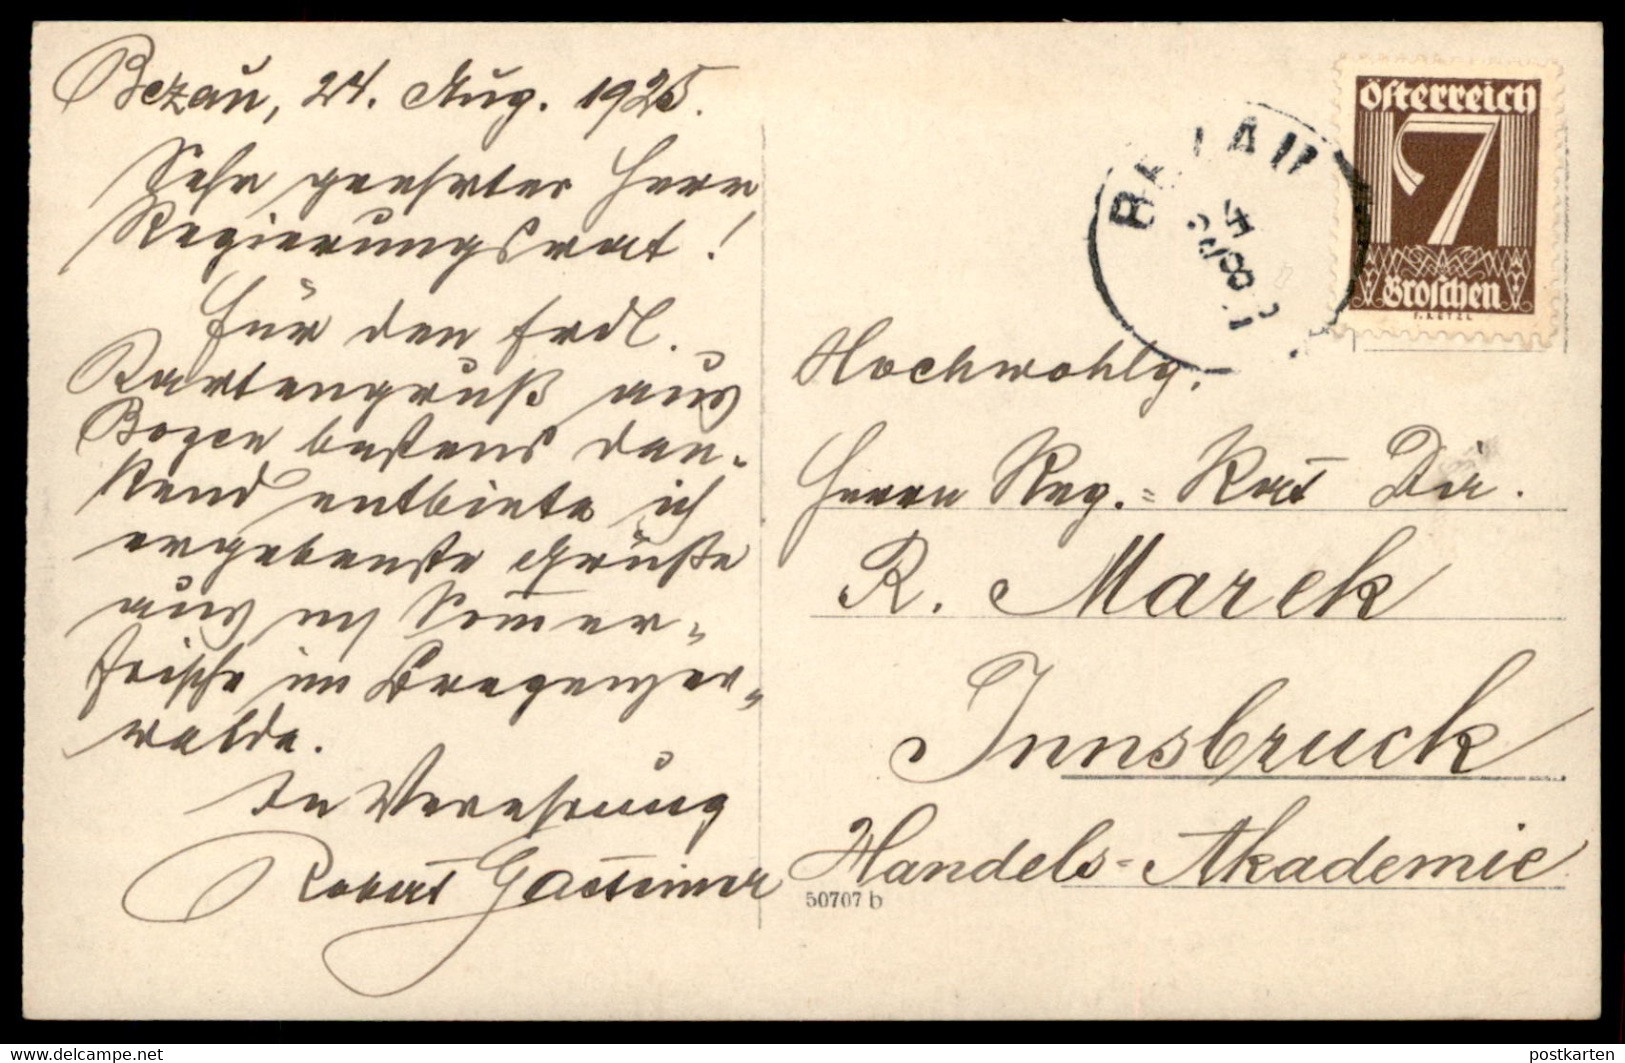 Bezau, 24. Aug. 1925.
Sehr geehrter Herr
Regierungsrat!
Für den frdl.
Kartengruß aus
Bozen bestens dan-
kend entbiete ich
ergebenste Grüße
aus m Som̅er-
frische im Bregenzer-
walde.
In Verehrung
Robert Gasteiner
Österreich
7
Groschen
Hochwohlg.
Herrn Reg.= Rat Dir.
R. Marek
Innsbruck
Handels-Akademie
50707 b
postkarten